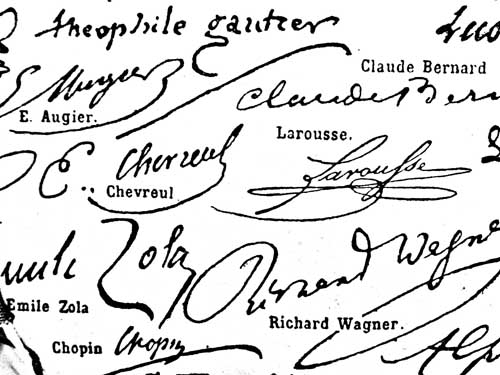 theophile gautier
Claude Bernard
E. Augier
Claude Bern
E. Augier.
Larousse.
E. Chevreul
Larousse
Chevreul
Zola
Richard Wagner
Emile Zola
Richard Wagner.
Chopin Chopin